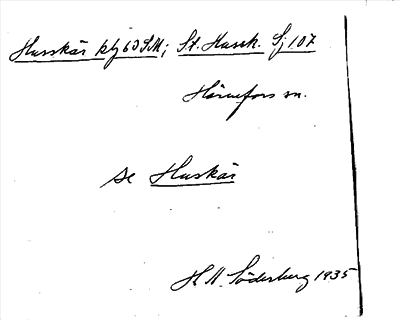 Husskär blj 60 SM; St. Husek. Sj 107
Hörnefors sn.
se Huskär
H. N. Söderberg 1935